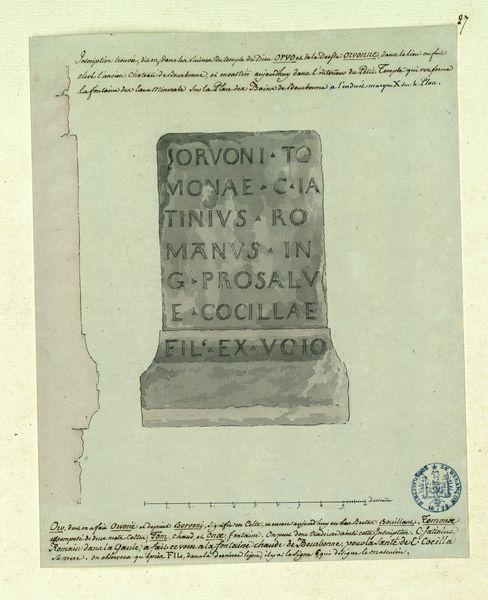 27
Inscription trouvée, dit on, dans les ruines du temple du Dieu ORVO et de la Déesse ORVONNE, dans le lieu ou fut
elevé l'ancien chateau de Bourbonne, et encastrée aujourdhuy dans l'interieur du Petit Temple qui renferme
la fontaine des Eaux Minerales sur la Place des Bains de Bourbonne a l'endroit marqué X sur le Plan.
SORVONI · TO
MONAE · C · IA
TINIVS · RO
MANVS · IN
G · PROSALV
E · COCILLAE
FIL · EX · VOIO
Orv, dont on a fait Orvone et depuis Borvoni, signifie en Celte, et encore aujourdhuy en bas Breton Bouillant. Tomonae
est composé de deux mots Celtes Tom, chaud, et Onae fontaine. On peut donc traduire ainsi cette Inscription. C. Jatinius
Romain dans la Gaule, a fait ce voeu a la fontaine chaude de Bourbonne, pour la Santé de Cocilla
on observera qu'après FIL, dans la derniere ligne, il y a le signe qui désigne le masculin.
BIBLIOTHEQUE DE BESANÇON